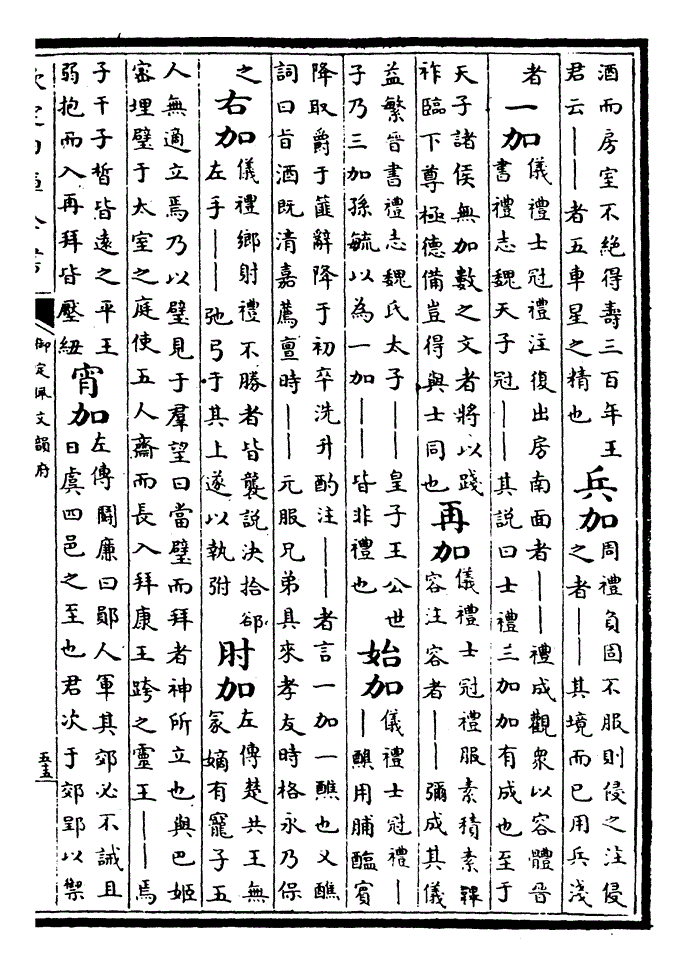 酒而房室不絕得壽三百年王
君云——者五車星之精也
兵加
周禮負固不服則侵之注侵
之者——其境而已用兵淺
者
一加
儀禮士冠禮注復出房南面者——禮成觀衆以容體晉
書禮志魏天子冠——其說曰士禮三加加有成也至于
天子諸侯無加數之文者將以踐
祚臨下尊極德備豈得與士同也
再加
儀禮士冠禮服素積素韠
容注容者——彌成其儀
益繁晉書禮志魏氏太子——皇子王公世
子乃三加孫毓以為一加——皆非禮也
始加
儀禮士冠禮—
—醮用脯醢賓
降取爵于篚辭降于初卒洗升酌注——者言一加一醮也又醮
詞曰旨酒既清嘉薦亶時——元服兄弟具來孝友時格永乃保
之
右加
儀禮鄉射禮不勝者皆襲說決拾郤
左手——弛弓于其上遂以執弣
肘加
左傳楚共王無
冡嫡有寵子五
人無適立焉乃以璧見于羣望曰當璧而拜者神所立也與巴姬
宻埋璧于太室之庭使五人齋而長入拜康王跨之靈王——焉
子干子晳皆遠之平王
弱抱而入再拜皆壓紐
宵加
左傳鬬廉曰鄖人軍其郊必不誡且
日虞四邑之至也君次于郊郢以禦
御定佩文韻府